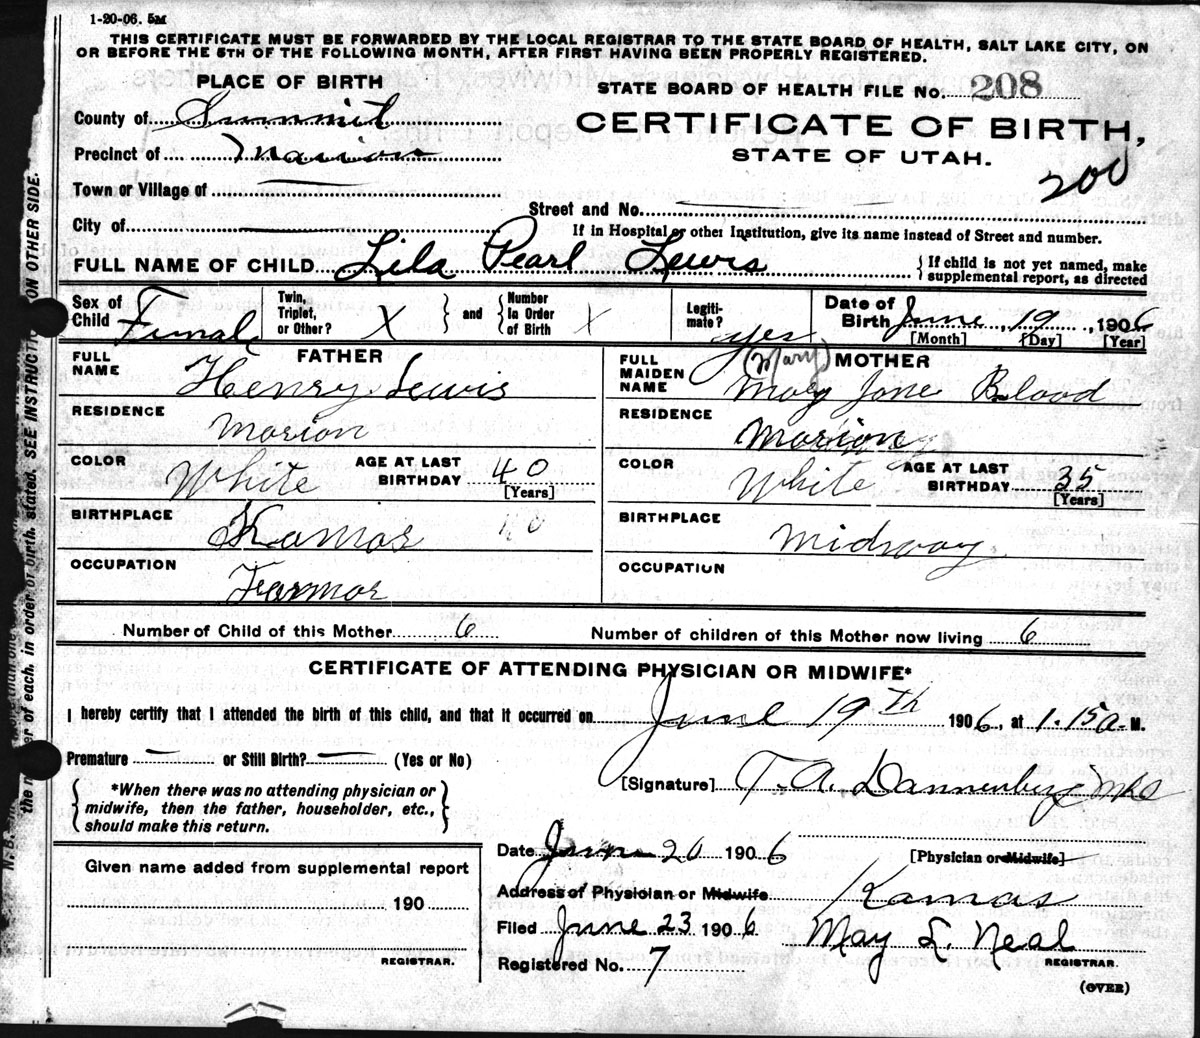 1-20-06. 5M
THIS CERTIFICATE MUST BE FORWARDED BY THE LOCAL REGISTRAR TO THE STATE BOARD OF HEALTH, SALT LAKE CITY, ON
OR BEFORE THE 5TH OF THE FOLLOWING MONTH, AFTER FIRST HAVING BEEN PROPERLY REGISTERED.
PLACE OF BIRTH
STATE BOARD OF HEALTH FILE NO. 208
County of Summit
CERTIFICATE OF BIRTH,
Precinct of Marion
STATE OF UTAH.
200
Town or Village of
Street and No.
City of
If in Hospital or other Institution, give its name instead of Street and number.
FULL NAME OF CHILD Lila Pearl Lewis
If child is not yet named, make
supplemental report, as directed
Sex of Child Femal
Twin, Triplet, or Other? X and Number In Order of Birth X
Legiti-mate? yes
Date of Birth June 19, 1906
[Month] [Day] [Year]
FATHER
FULL NAME Henry Lewis
RESIDENCE Marion
COLOR White AGE AT LAST BIRTHDAY 40 [Years]
BIRTHPLACE Kamas
OCCUPATION Farmer
MOTHER
(Mary)
FULL MAIDEN NAME May Jane Blood
RESIDENCE Marion
COLOR White AGE AT LAST BIRTHDAY 35 [Years]
BIRTHPLACE Midway
OCCUPATION
Number of Child of this Mother 6 Number of children of this Mother now living 6
CERTIFICATE OF ATTENDING PHYSICIAN OR MIDWIFE*
I hereby certify that I attended the birth of this child, and that it occurred on June 19th 1906, at 1.15 a. M.
Premature — or Still Birth? — (Yes or No)
[Signature] T. A. Dannenberg
*When there was no attending physician or
midwife, then the father, householder, etc.,
should make this return.
Date June 20 1906
[Physician or Midwife]
Given name added from supplemental report
190
REGISTRAR.
Address of Physician or Midwife Kamas
Filed June 23 1906 May L. Neal
Registered No. 7 REGISTRAR.
(OVER)
SEE INSTRUCTIONS ON OTHER SIDE.
of each, in order of birth, stated.